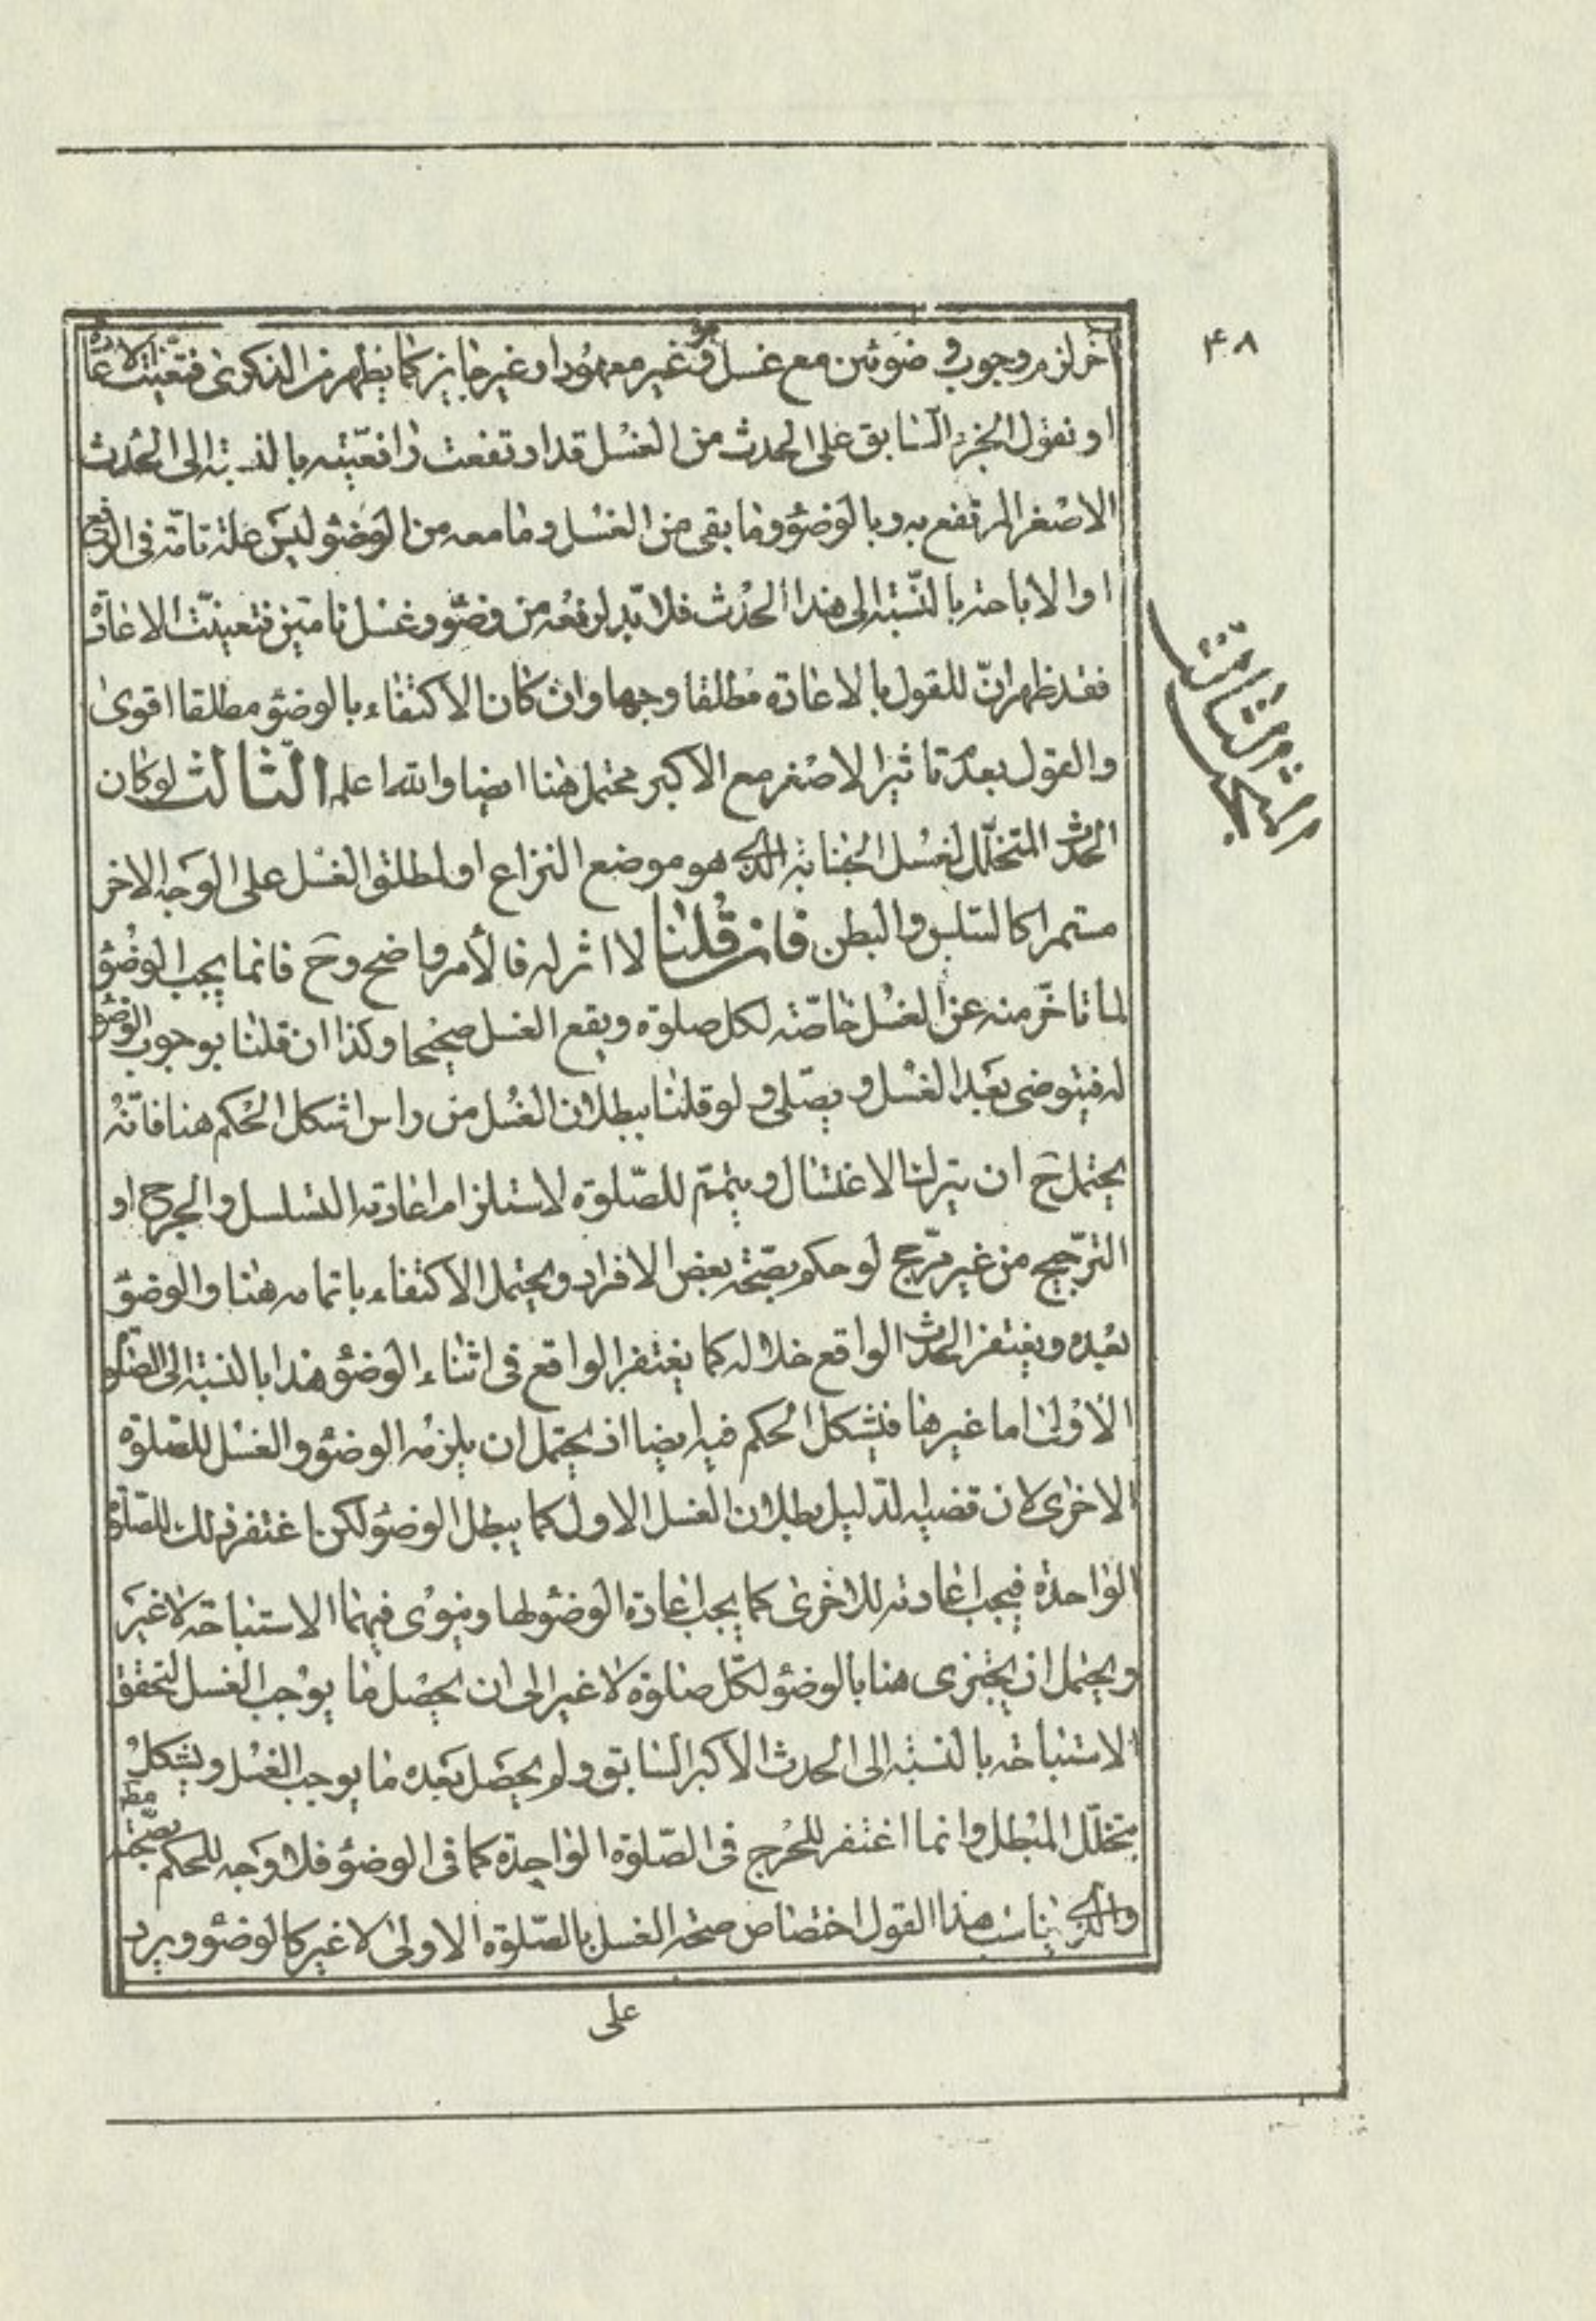 ۴۸
آخر لزم وجوب وضوئين مع غسل وهو غير معهود او غير جايز كما يظهر من الذكرى فتعينت الاعادة
او نقول الجزء السابق على الحدث من الغسل قد ارتفعت رافعيته بالنسبة الى الحدث
الاصغر المرتفع به وبالوضوء وما بقى من الغسل وما معه من الوضوء ليس علة تامة فى الرفع
او الاباحة بالنسبة الى هذا الحدث فلا بد لرفعه من وضوء وغسل تامين فتعينت الاعادة
فقد ظهر ان للقول بالاعادة مطلقا وجها وان كان الاكتفاء بالوضوء مطلقا اقوى
والقول بعدم تاثير الاصغر مع الاكبر محتمل هنا ايضا والله اعلم الثالث لو كان
الحدث المتخلل لغسل الجنابة الذى هو موضع النزاع او لمطلق الغسل على الوجه الاخر
مستمرا كالسلس والبطن فان قلنا لا اثر له فالأمر واضح وح فانما يجب الوضوء
لما تاخر منه عن الغسل خاصة لكل صلوة ويقع الغسل صحيحا وكذا ان قلنا بوجوب الوضوء
له فيتوضى بعد الغسل ويصلى ولو قلنا ببطلان الغسل من راس اشكل الحكم هنا فانه
يحتمل ح ان يترك الاغتسال ويتمم للصلوة لاستلزام اعادته التسلسل والحرج او
الترجيح من غير مرجح لو حكم بصحة بعض الافراد ويحتمل الاكتفاء باتمامه هنا والوضوء
بعده ويغتفر الحدث الواقع خلاله كما يغتفر الواقع فى اثناء الوضوء هذا بالنسبة الى الصلوة
الاولى اما غيرها فيشكل الحكم فيه ايضا اذ يحتمل ان يلزمه الوضوء والغسل للصلوة
الاخرى لان قضية الدليل بطلان الغسل الاول كما يبطل الوضوء لكن اغتفر ذلك للصلوة
الواحدة فيجب اعادته للاخرى كما يجب اعادة الوضوء لها وينوى فيهما الاستباحة لا غير
ويحتمل ان يجتزى هنا بالوضوء لكل صلوة لا غير الى ان يحصل ما يوجب الغسل لتحقق
الاستباحة بالنسبة الى الحدث الاكبر السابق ولم يحصل بعده ما يوجب الغسل ويشكل
بتخلل المبطل وانما اغتفر للحرج فى الصلوة الواحدة كما فى الوضوء فلا وجه للحكم بصحته مط
والذى يناسب هذا القول اختصاص صحة الغسل بالصلوة الاولى لا غير كالوضوء ويرد
على